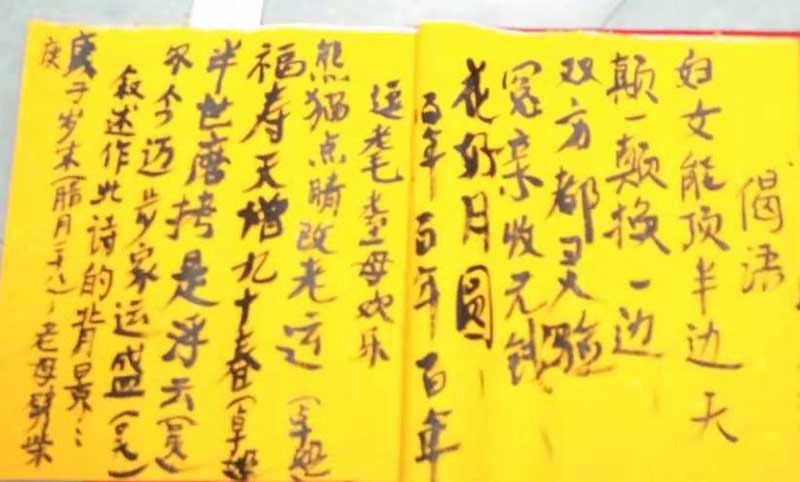 偈语
妇女能顶半边天
颠一颠换一边
双方都灵验
冤亲收元钱
花好月圆
百年百年百年
逗老毛老母欢乐
熊猫点睛改老运（卓
福寿天增九十春（卓
半世磨拷是浮云（
尔今迈步家运盛（
叙述作此诗的背景：
庚子岁末（腊月二十 老母劈柴
庚